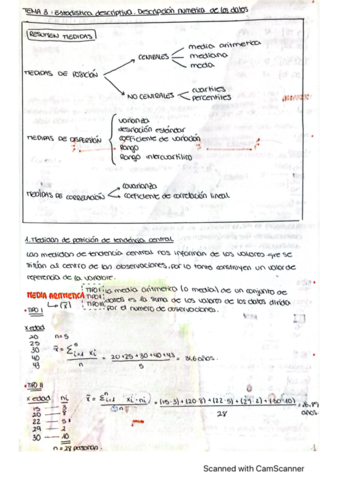 TEMA 3: Estadística descriptiva. Descripción numérica de los datos
RESUMEN MEDIDAS
MEDIDAS DE POSICIÓN
CENTRALES
media aritmética
mediana
moda
NO CENTRALES
cuartiles
percentiles
MEDIDAS DE DISPERSIÓN
varianza
desviación estándar
coeficiente de variación
Rango
Rango intercuartílico
MEDIDAS DE CORRELACIÓN
covarianza
coeficiente de correlación lineal
1. Medidas de posición de tendencia central
Las medidas de tendencia central nos informan de los valores que se
sitúan al centro de las observaciones, por lo tanto construyen un valor de
referencia de la variable.
MEDIA ARITMÉTICA
TIPO I
TIPO II
TIPO III
la media aritmética (o media) de un conjunto de
valores es la suma de los valores de los datos dividido
por el número de observaciones.
(x̄)
• TIPO I
x edad
20
25
30
40
43
n=5
x̄ = Σ xi / n = 20+25+30+40+43 / 5 = 31.6 años.
• TIPO II
x edad ni
15 — 3
20 — 8
22 — 5
29 — 2
30 — 10
n = 28 personas.
x̄ = Σ xi · ni / n = (15·3) + (20·8) + (22·5) + (29·2) + (30·10) / 28
años.
Scanned with CamScanner